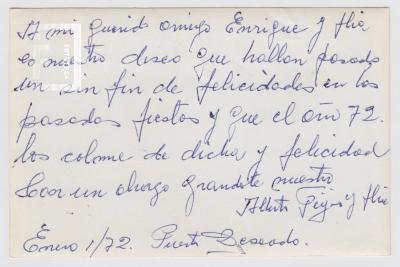 A mi querido amigo Enrique y flia
es nuestro deseo que hallan pasado
un sin fin de felicidades en las
pasadas fiestas y que el año 72.
los colme de dicha y felicidad
Con un abrazo grandote nuestro
Alberto y flia
Enero 1/72. Puerto Deseado.